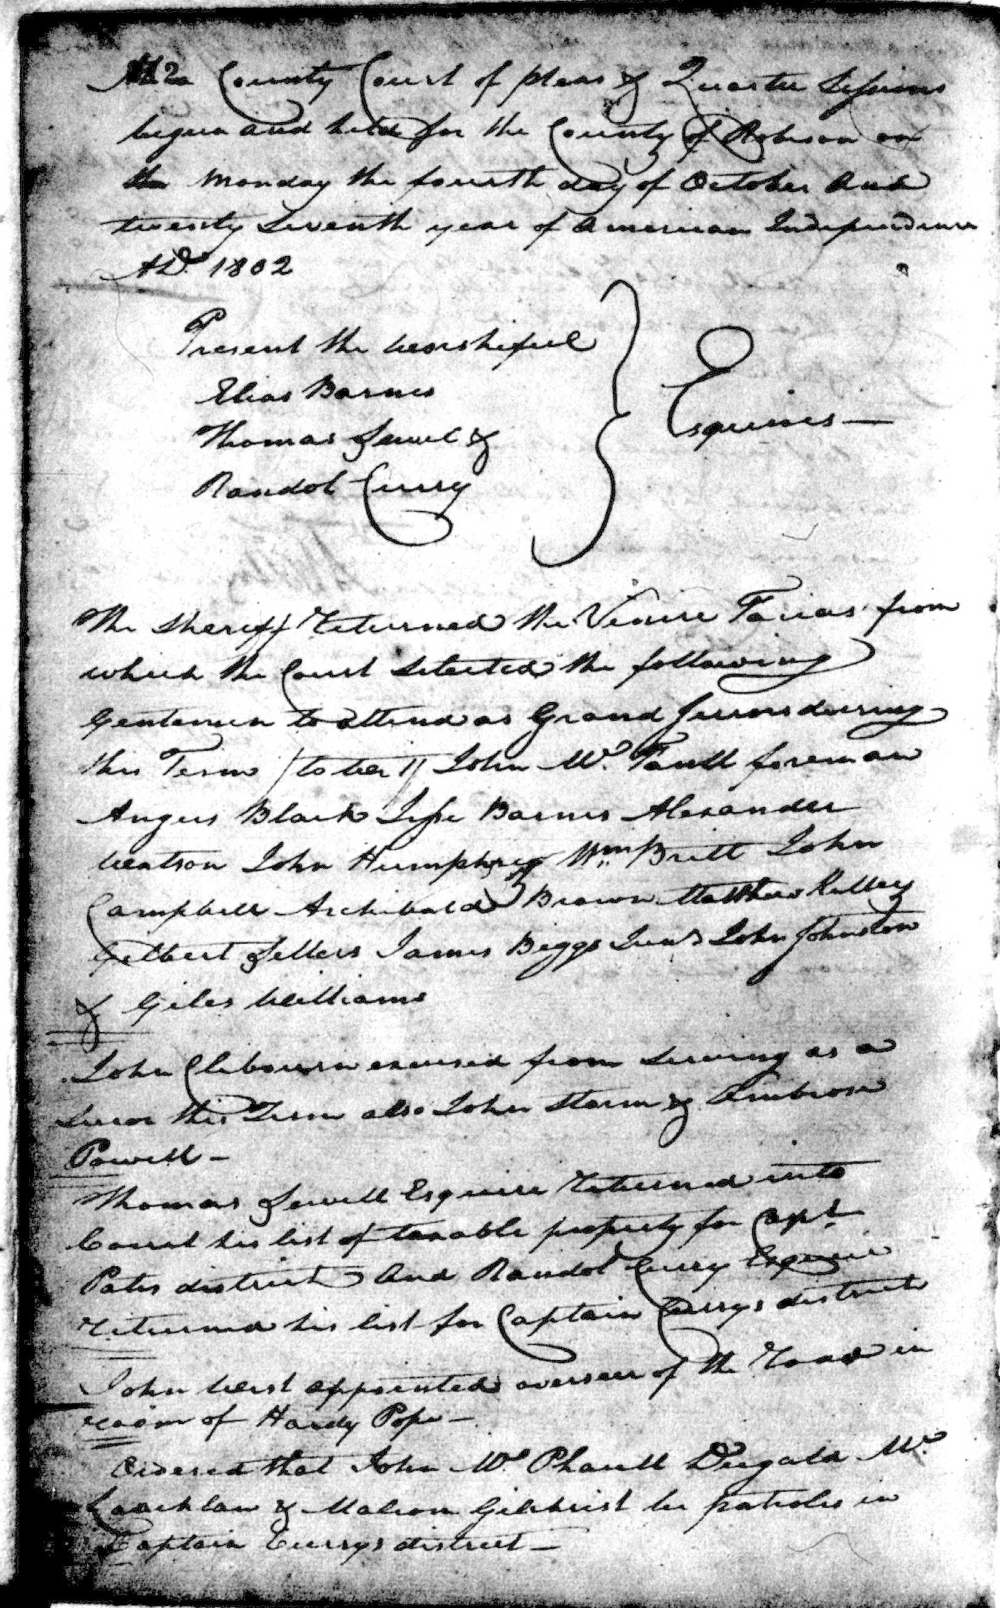 At a County Court of pleas & Quarter Sessions
begun and held for the County of Robeson on
the Monday the fourth day of October And
twenty Seventh year of American Independence
AD. 1802
Present the worshipful
Elias Barnes
Thomas Sewel &
Randol Curry
Esquires —
The Sheriff Returned the Venire Facias from
which the Court Selected the following
Gentemen to attend as Grand Jurrors during
this Term (to wit) John Mc. Faull foreman
Angus Black Jesse Barnes Alexander
Watson John Humphrey Wm. Britt John
Campbell Archibald Brown Matthew Kelley
Gilbert Sellers James Biggs Junr John Johnston
& Giles Williams
John Clibourn excused from Serving as a
Juror this Term also John Storm & Ambrose
Powell —
Thomas Sewell Esquire Returned into
Court his list of taxable property for Capt.
Pates district And Randol Curry Esquire
returned his list for Captain Currys district
John West appointed overseer of the Road in
room of Hardy Pope —
Ordered that John Mc. Phaull Dugald Mc.
Lauchlan & Malcom Gilchrist be patroles in
Captain Currys district —